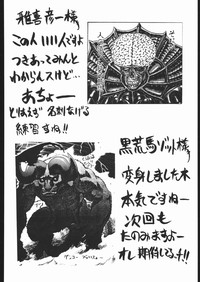 雅喜彦一様
この人いい人ですよ
つきあってみんと
わからんスけど…
あちょー
とりあえず名刺なげる
練習すね!!
黒荒馬ゾット様
変身しました木
本気ですねー
次回も
たのみますよー
オレ期待してるっす!!